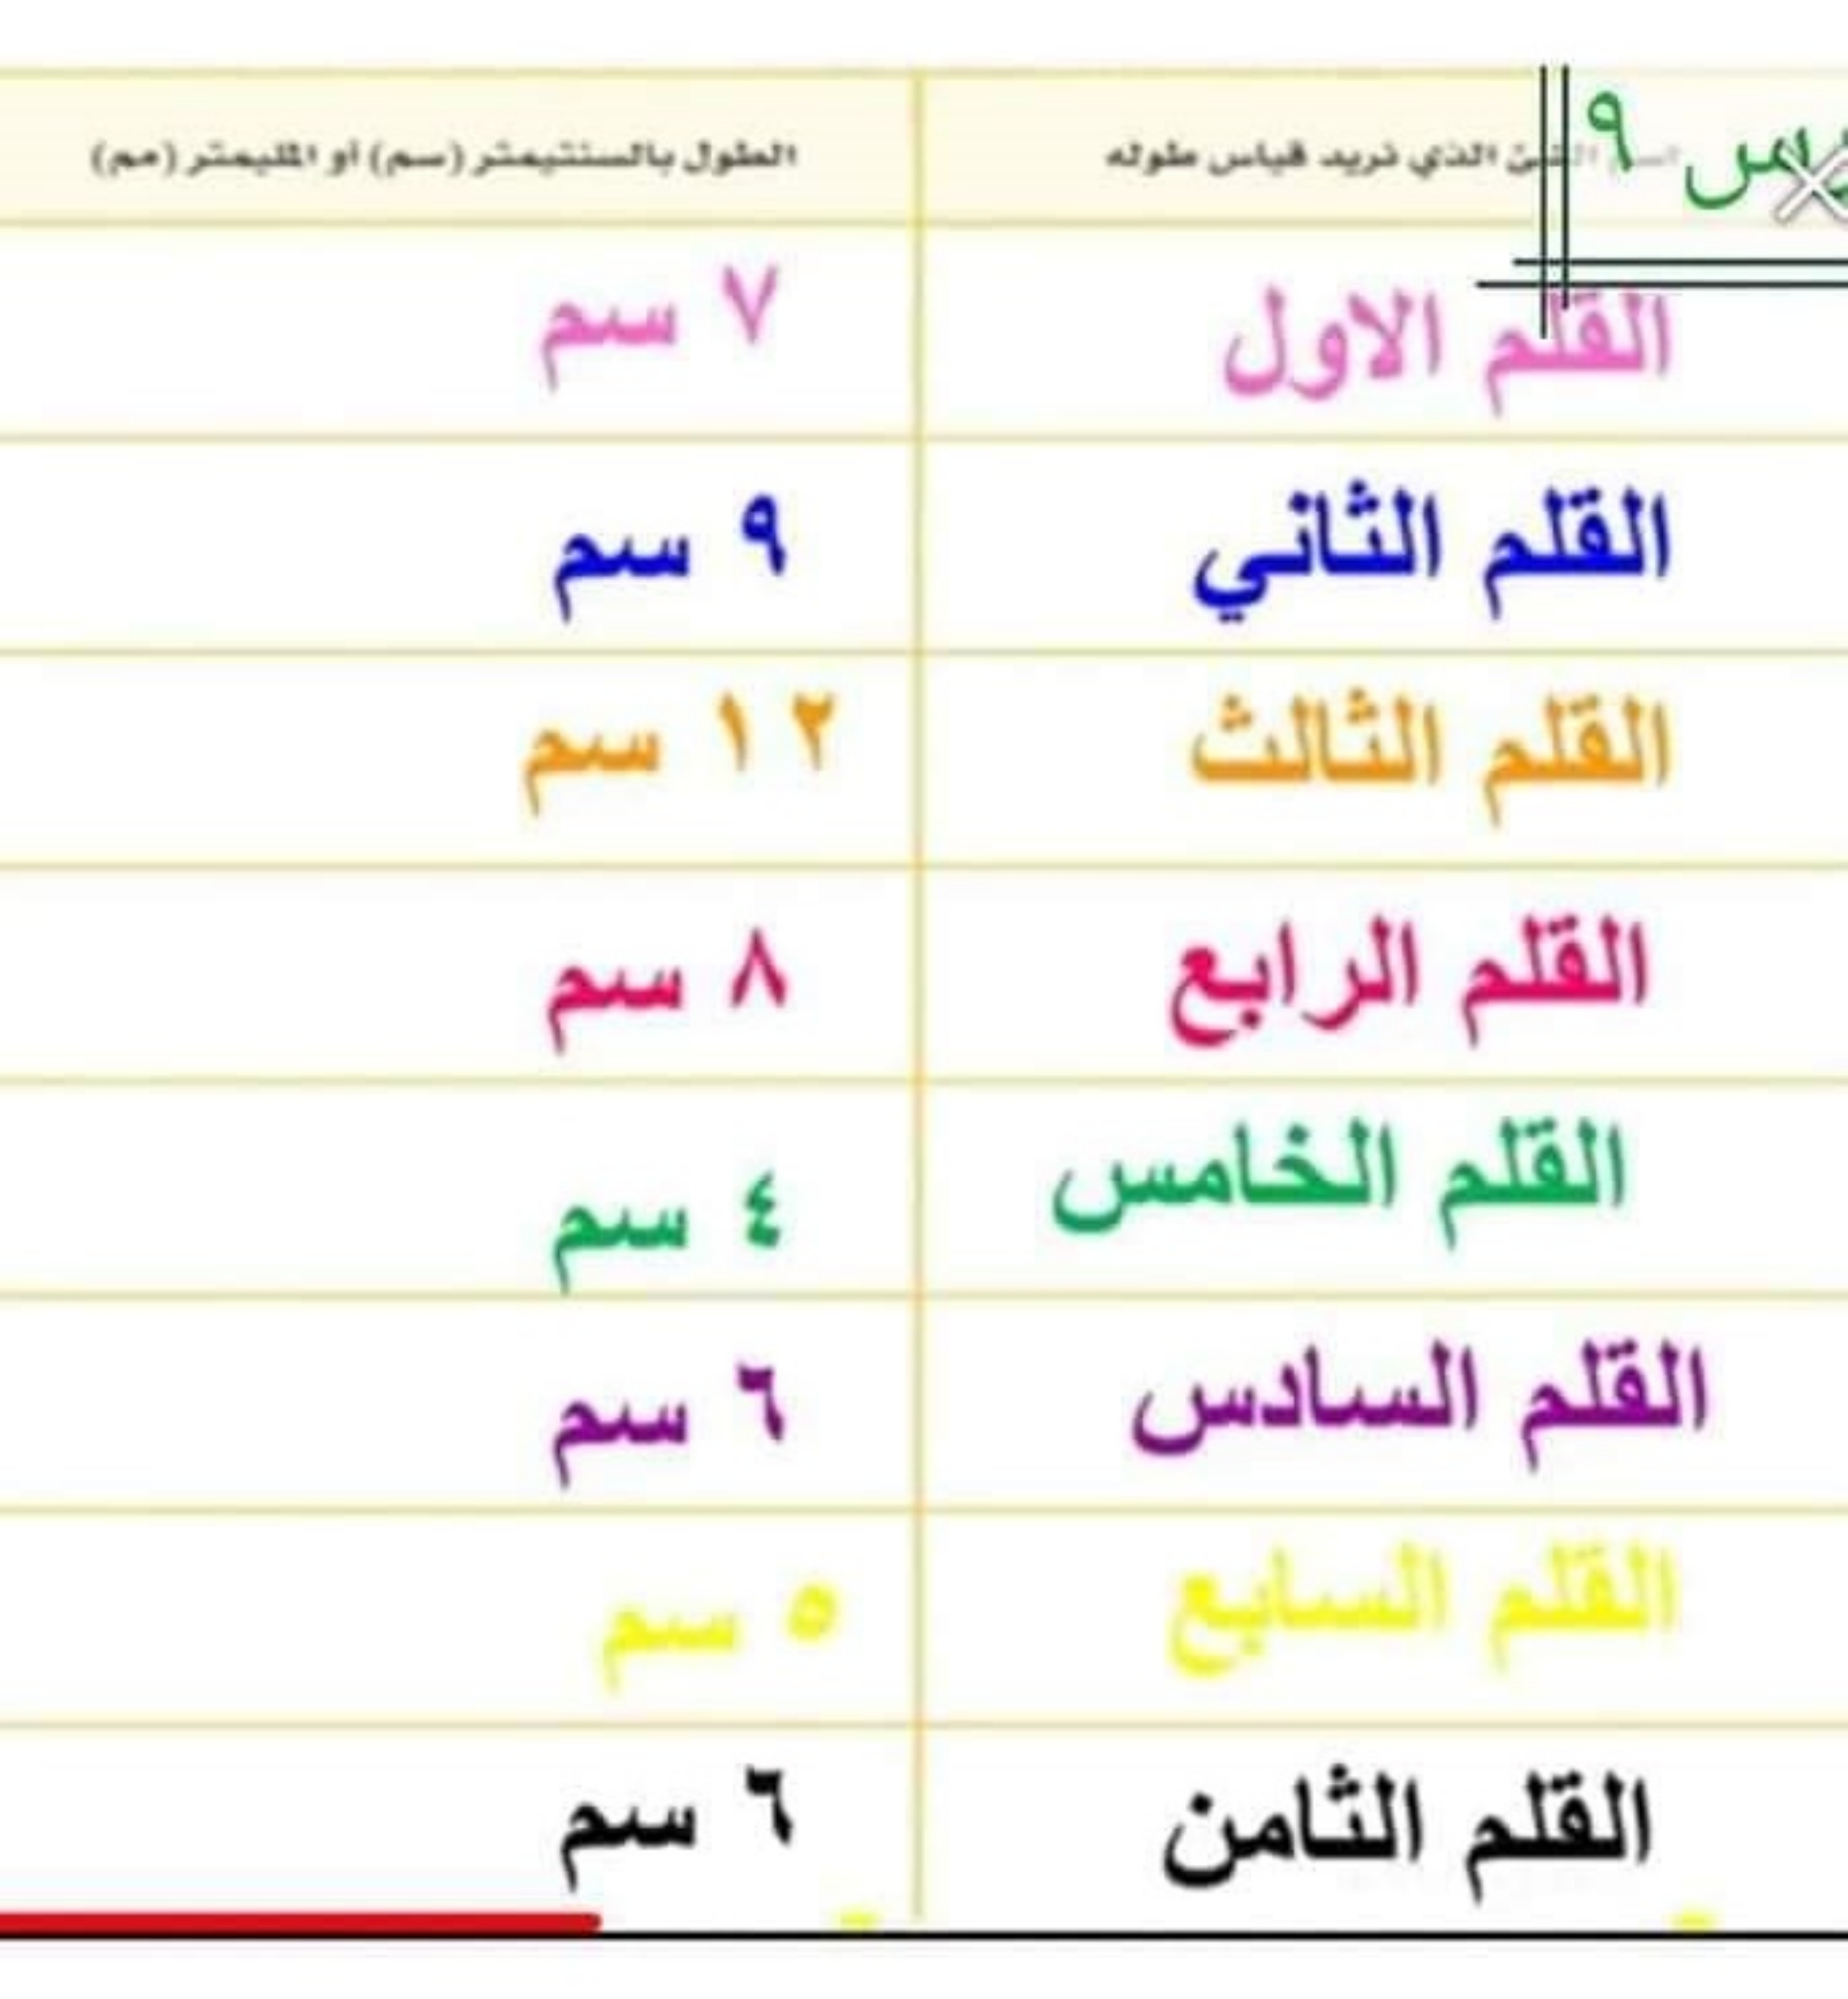 س ٩
الذي نريد قياس طوله
الطول بالسنتيمتر (سم) أو المليمتر (مم)
القلم الاول
٧ سم
القلم الثاني
٩ سم
القلم الثالث
٢ ١ سم
القلم الرابع
٨ سم
القلم الخامس
٤ سم
القلم السادس
٦ سم
القلم السابع
٥ سم
القلم الثامن
٦ سم